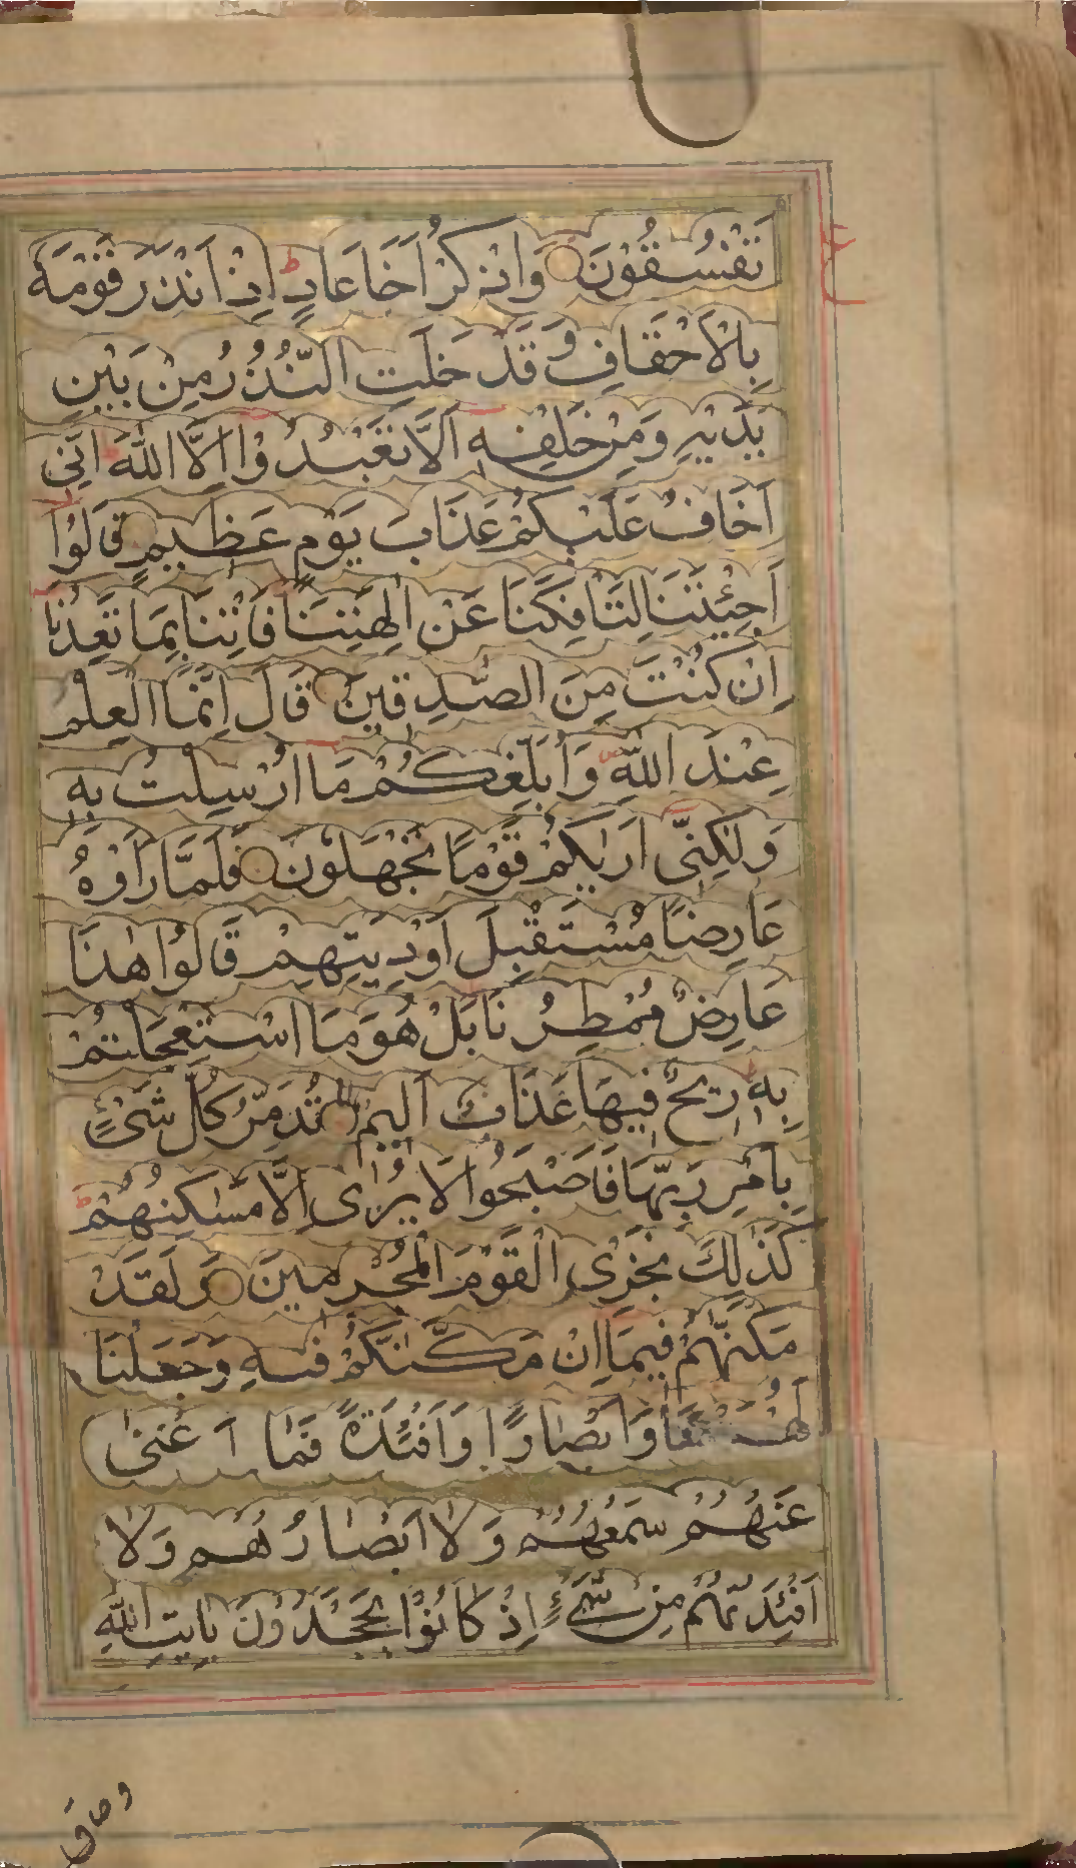 تَفْسُقُوْنَ وَاذْكُرْ اَخَا عَادٍ ط اِذْ اَنْذَرَ قَوْمَهٗ
بِالْاَحْقَافِ وَقَدْ خَلَتِ النُّذُرُ مِنْ بَيْنِ
يَدَيْهِ وَمِنْ خَلْفِهٖ اَلَّا تَعْبُدُوْا اِلَّا اللّٰهَ اِنِّىْ
اَخَافُ عَلَيْكُمْ عَذَابَ يَوْمٍ عَظِيْمٍ قَالُوْا
اَجِئْتَنَا لِتَاْفِكَنَا عَنْ اٰلِهَتِنَا فَاْتِنَا بِمَا تَعِدُنَا
اِنْ كُنْتَ مِنَ الصّٰدِقِيْنَ قَالَ اِنَّمَا الْعِلْمُ
عِنْدَ اللّٰهِ وَاُبَلِّغُكُمْ مَا اُرْسِلْتُ بِهٖ
وَلٰكِنِّىْ اَرٰىكُمْ قَوْمًا تَجْهَلُوْنَ فَلَمَّا رَاَوْهُ
عَارِضًا مُسْتَقْبِلَ اَوْدِيَتِهِمْ قَالُوْا هٰذَا
عَارِضٌ مُمْطِرُنَا بَلْ هُوَ مَا اسْتَعْجَلْتُمْ
بِهٖ رِيْحٌ فِيْهَا عَذَابٌ اَلِيْمٌ تُدَمِّرُ كُلَّ شَىْءٍ
بِاَمْرِ رَبِّهَا فَاَصْبَحُوْا لَا يُرٰى اِلَّا مَسٰكِنُهُمْ ط
كَذٰلِكَ نَجْزِى الْقَوْمَ الْمُجْرِمِيْنَ وَلَقَدْ
مَكَّنّٰهُمْ فِيْمَا اِنْ مَكَّنّٰكُمْ فِيْهِ وَجَعَلْنَا
لَهُمْ سَمْعًا وَاَبْصَارًا وَاَفْئِدَةً فَمَا اَغْنٰى
عَنْهُمْ سَمْعُهُمْ وَلَا اَبْصَارُهُمْ وَلَا
اَفْئِدَتُهُمْ مِنْ شَىْءٍ اِذْ كَانُوْا يَجْحَدُوْنَ بِاٰيٰتِ اللّٰهِ
وحاق